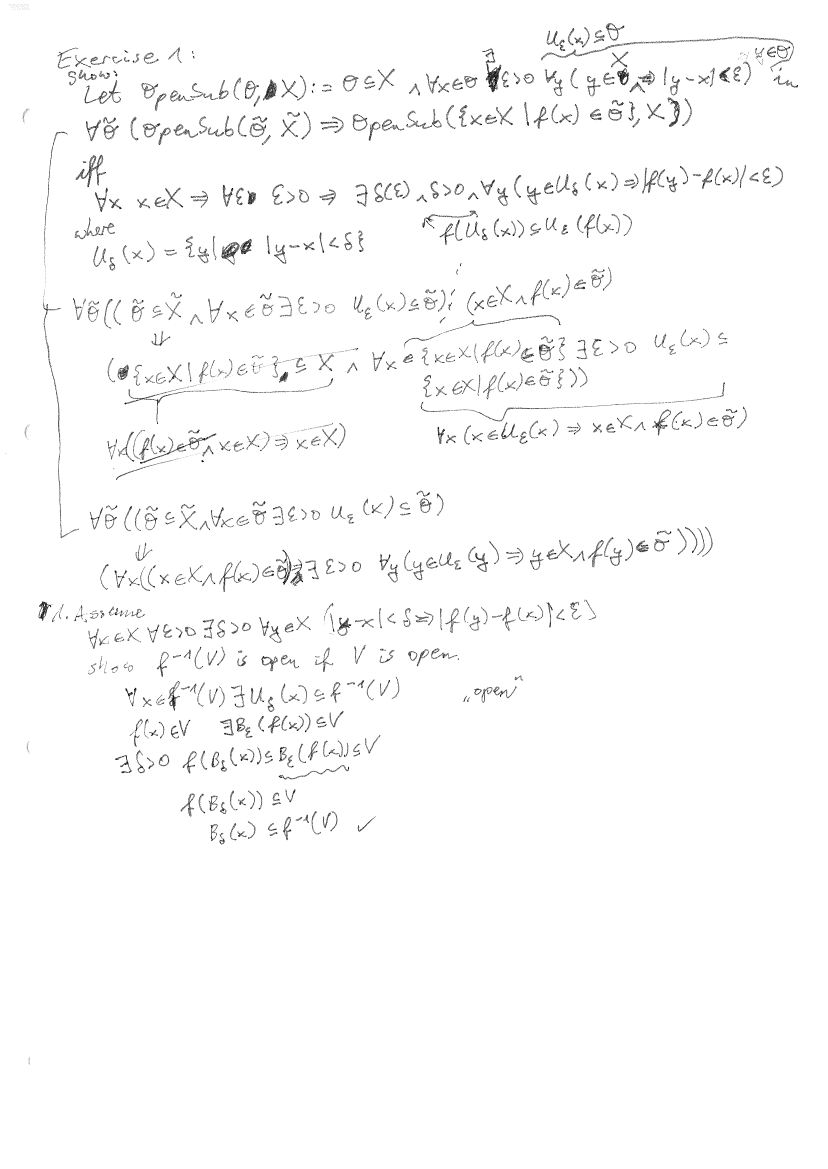 Exercise 1:
Show:
U_ε(x) ⊆ O
Let OpenSub(O, X) := O ⊆ X ∧ ∀x∈O ∃ε>0 ∀y (y∈X ∧ |y-x|<ε) ⇒ y∈O in
∀Õ (OpenSub(Õ, X̃) ⇒ OpenSub({x∈X | f(x) ∈ Õ}, X))
iff
∀x x∈X ⇒ ∀ε ε>0 ⇒ ∃δ(ε) ∧ δ>0 ∧ ∀y (y∈U_δ(x) ⇒ |f(y)-f(x)|<ε)
where
U_δ(x) = {y | |y-x|<δ} f(U_δ(x)) ⊆ U_ε(f(x))
∀Õ((Õ ⊆ X̃ ∧ ∀x∈Õ ∃ε>0 U_ε(x) ⊆ Õ) (x∈X ∧ f(x)∈Õ)
⇓
({x∈X | f(x)∈Õ} ⊆ X ∧ ∀x∈{x∈X | f(x)∈Õ} ∃ε>0 U_ε(x) ⊆
{x∈X | f(x)∈Õ}))
∀x((f(x)∈Õ ∧ x∈X) ⇒ x∈X) ∀x (x∈U_ε(x) ⇒ x∈X ∧ f(x)∈Õ)
∀Õ((Õ ⊆ X̃ ∧ ∀x∈Õ ∃ε>0 U_ε(x) ⊆ Õ)
⇓
(∀x((x∈X ∧ f(x)∈Õ) ⇒ ∃ε>0 ∀y(y∈U_ε(y) ⇒ y∈X ∧ f(y)∈Õ))))
1. Assume
∀x∈X ∀ε>0 ∃δ>0 ∀y∈X (|y-x|<δ ⇒ |f(y)-f(x)|<ε)
show f⁻¹(V) is open if V is open.
∀x∈f⁻¹(V) ∃U_δ(x) ⊆ f⁻¹(V) „open"
f(x)∈V ∃B_ε(f(x)) ⊆ V
∃δ>0 f(B_δ(x)) ⊆ B_ε(f(x)) ⊆ V
f(B_δ(x)) ⊆ V
B_δ(x) ⊆ f⁻¹(V) ✓